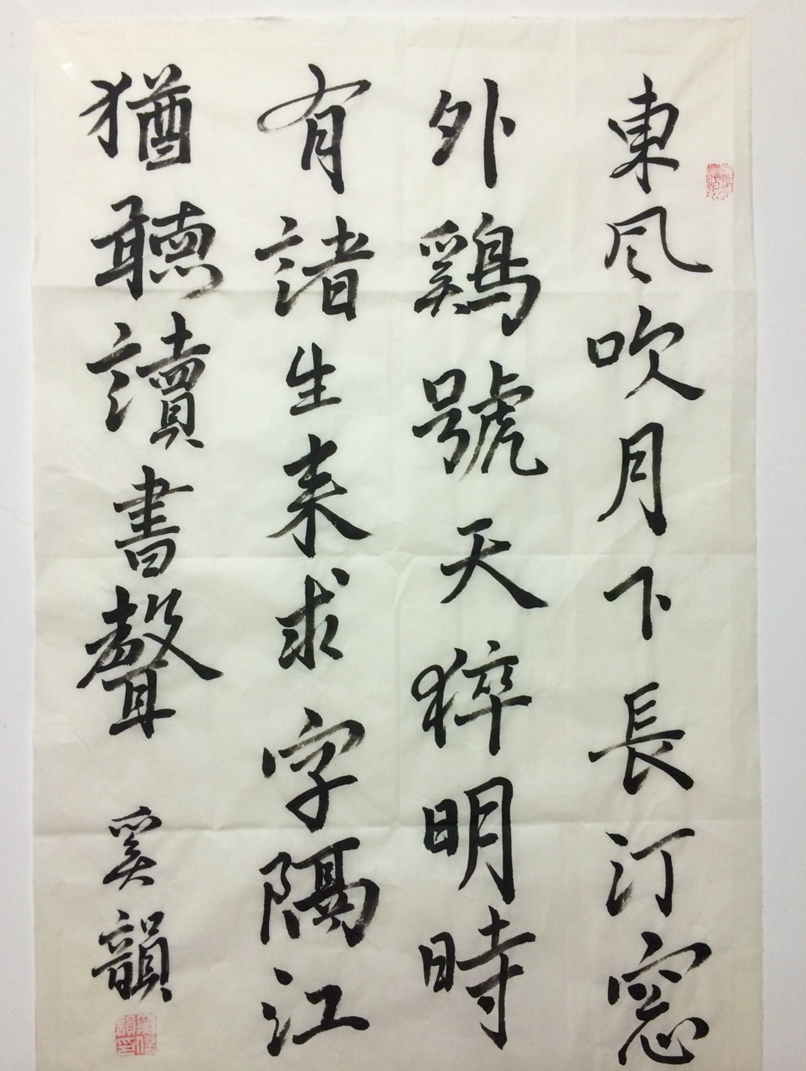 東風吹月下長汀窓
外鷄號天猝明時
有諸生来求字隔江
猶聽讀書聲
奚韻